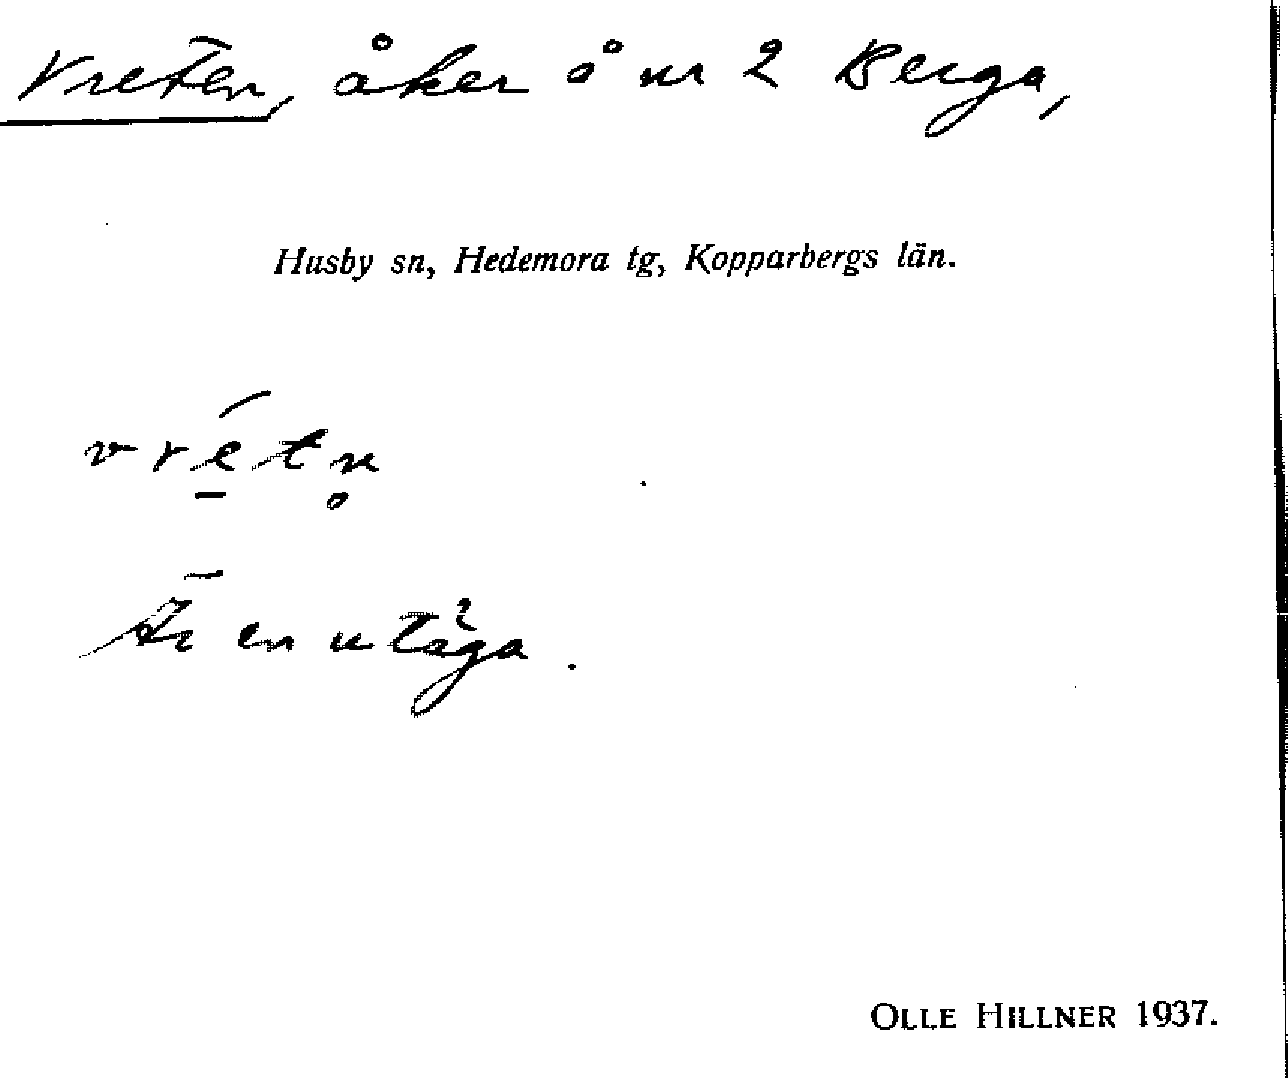 Vreten, åker å nr 2 Berga,
Husby sn, Hedemora tg, Kopparbergs län.
vré̱tn̥
Är en utäga.
OLLE HILLNER 1937.